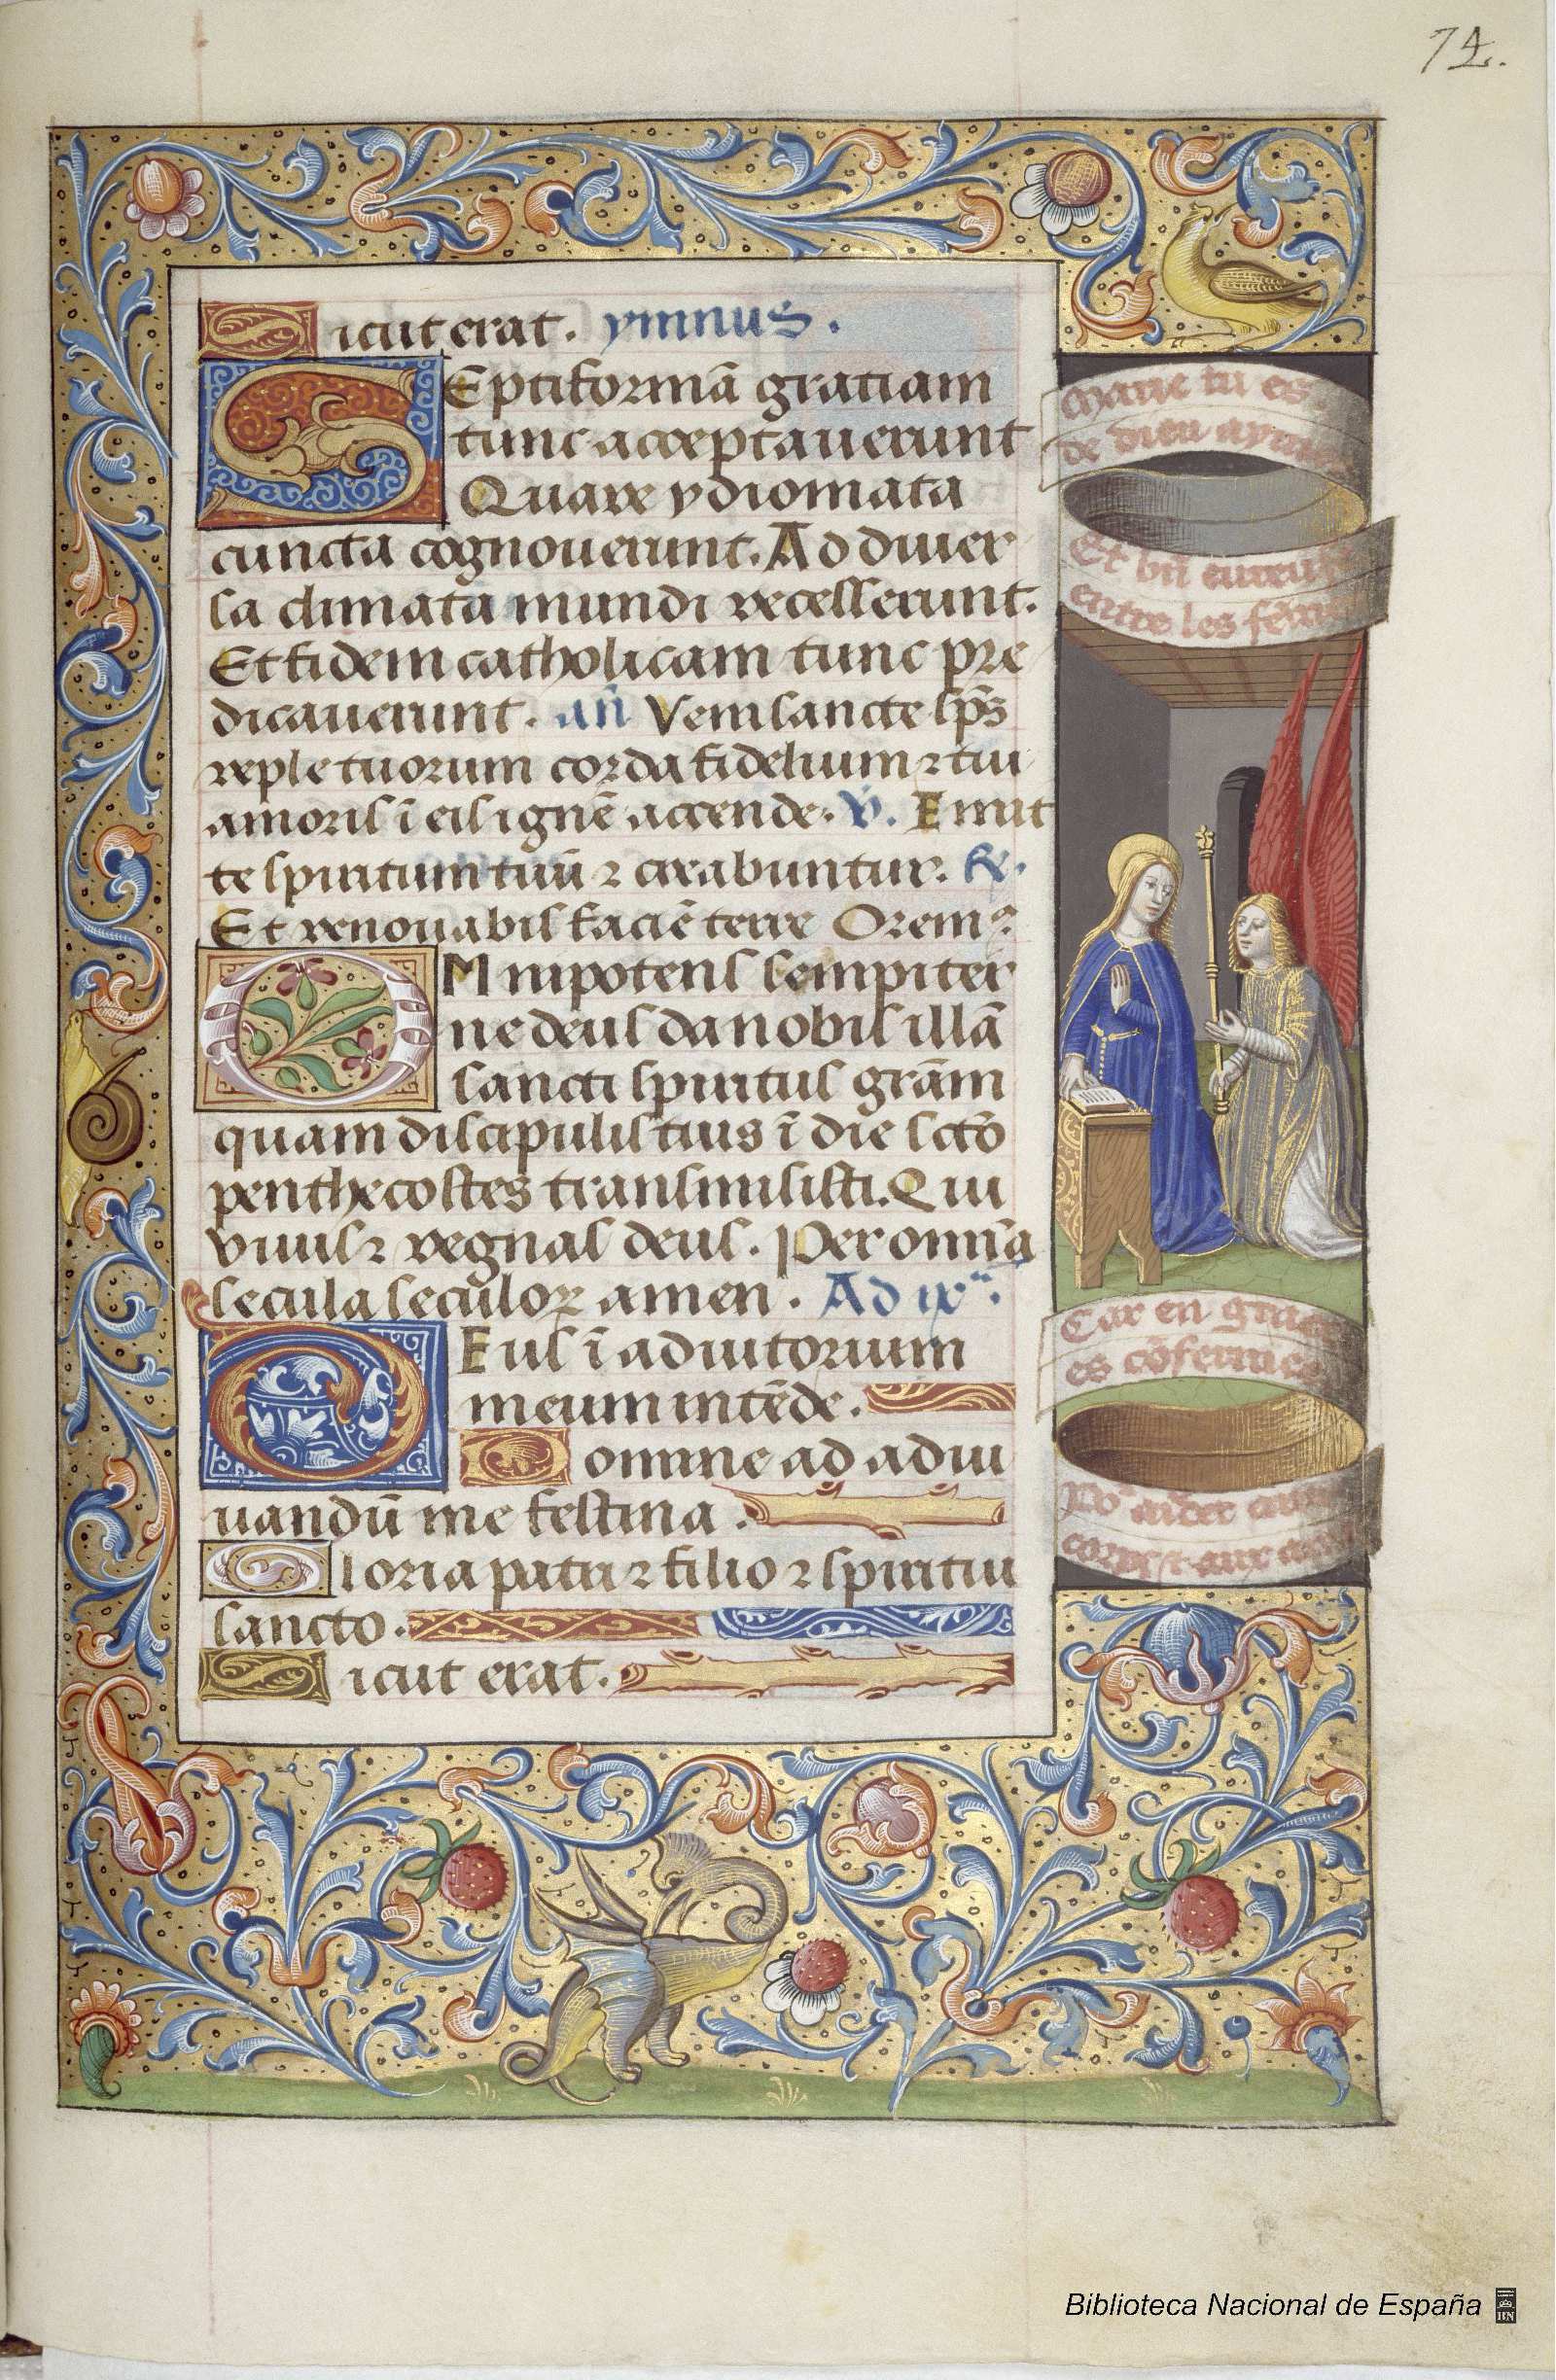 74.
Sicut erat. ymnus.
SEptiformā gratiam
tunc acceptauerunt
Quare ydiomata
cuncta cognouerunt. Ad diuer
sa climata mundi recesserunt.
Et fidem catholicam tunc pre
dicauerunt. añ Veni sancte sp̄s
reple tuorum corda fidelium ⁊ tui
amoris ī eis ignē accende. v̄. Emit
te spiritum tuū ⁊ creabuntur. ℟.
Et renouabis faciē terre Oremꝰ
OMnipotens sempiter
ne deus da nobis illā
sancti spiritus grām
quam discipulis tuis ī die sctō
penthecostes transmisisti. Qui
viuis ⁊ regnas deus. Per omnia
secula seculoꝝ amen. Ad ixᵃᵐ.
DEus ī adiutorium
meum intēde.
Domine ad adiu
uandū me festina.
Gloria patri ⁊ filio ⁊ spiritui
sancto.
Sicut erat.
Marie tu es
de dieu aymee
Et bn̄ eureuse
entre les fēmes
Car en grace
es cōfermee
Poᵉ
corps ⁊ aux
Biblioteca Nacional de España
BN